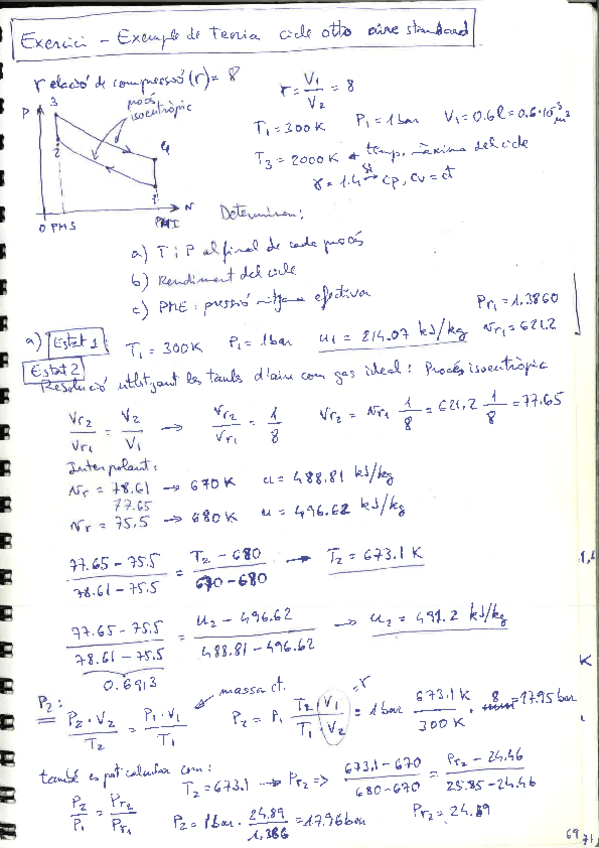 Exercici - Exemple de Teoria cicle otto aire standard
relació de compressió (r) = 8
r = V1/V2 = 8
T1 = 300K P1 = 1bar V1 = 0.6l = 0.6·10⁻³ m³
T3 = 2000K temp. màxima del cicle
γ = 1.4 → cp, cv = ct
P
3
procés isoentròpic
2
4
1
0 PMS
PMI
Determinen:
a) T i P al final de cada procés
b) Rendiment del cicle
c) PME: pressió mitjana efectiva
a) Estat 1: T1 = 300K P1 = 1bar u1 = 214.07 kJ/kg
Pr1 = 1.3860
vr1 = 621.2
Estat 2
Resolució utilitzant les taules d'aire com gas ideal: Procés isoentròpic
Vr2/Vr1 = V2/V1 → Vr2/Vr1 = 1/8 Vr2 = Vr1 1/8 = 621.2 1/8 = 77.65
Interpolant:
Vr = 78.61 → 670K u = 488.81 kJ/kg
77.65
Vr = 75.5 → 680K u = 496.62 kJ/kg
77.65-75.5 / 78.61-75.5 = T2-680 / 670-680 → T2 = 673.1 K
77.65-75.5 / 78.61-75.5 = u2-496.62 / 488.81-496.62 → u2 = 491.2 kJ/kg
0.6913
P2:
massa ct.
P2·V2/T2 = P1·V1/T1 P2 = P1 T2·V1/T1·V2 = 1bar 673.1K/300K · 8 = 17.95 bar
=r
també es pot calcular com:
T2 = 673.1 → Pr2 => 673.1-670 / 680-670 = Pr2-24.46 / 25.85-24.46
P2/P1 = Pr2/Pr1 P2 = 1bar · 24.89/1.386 = 17.96 bar Pr2 = 24.89
K
69
71